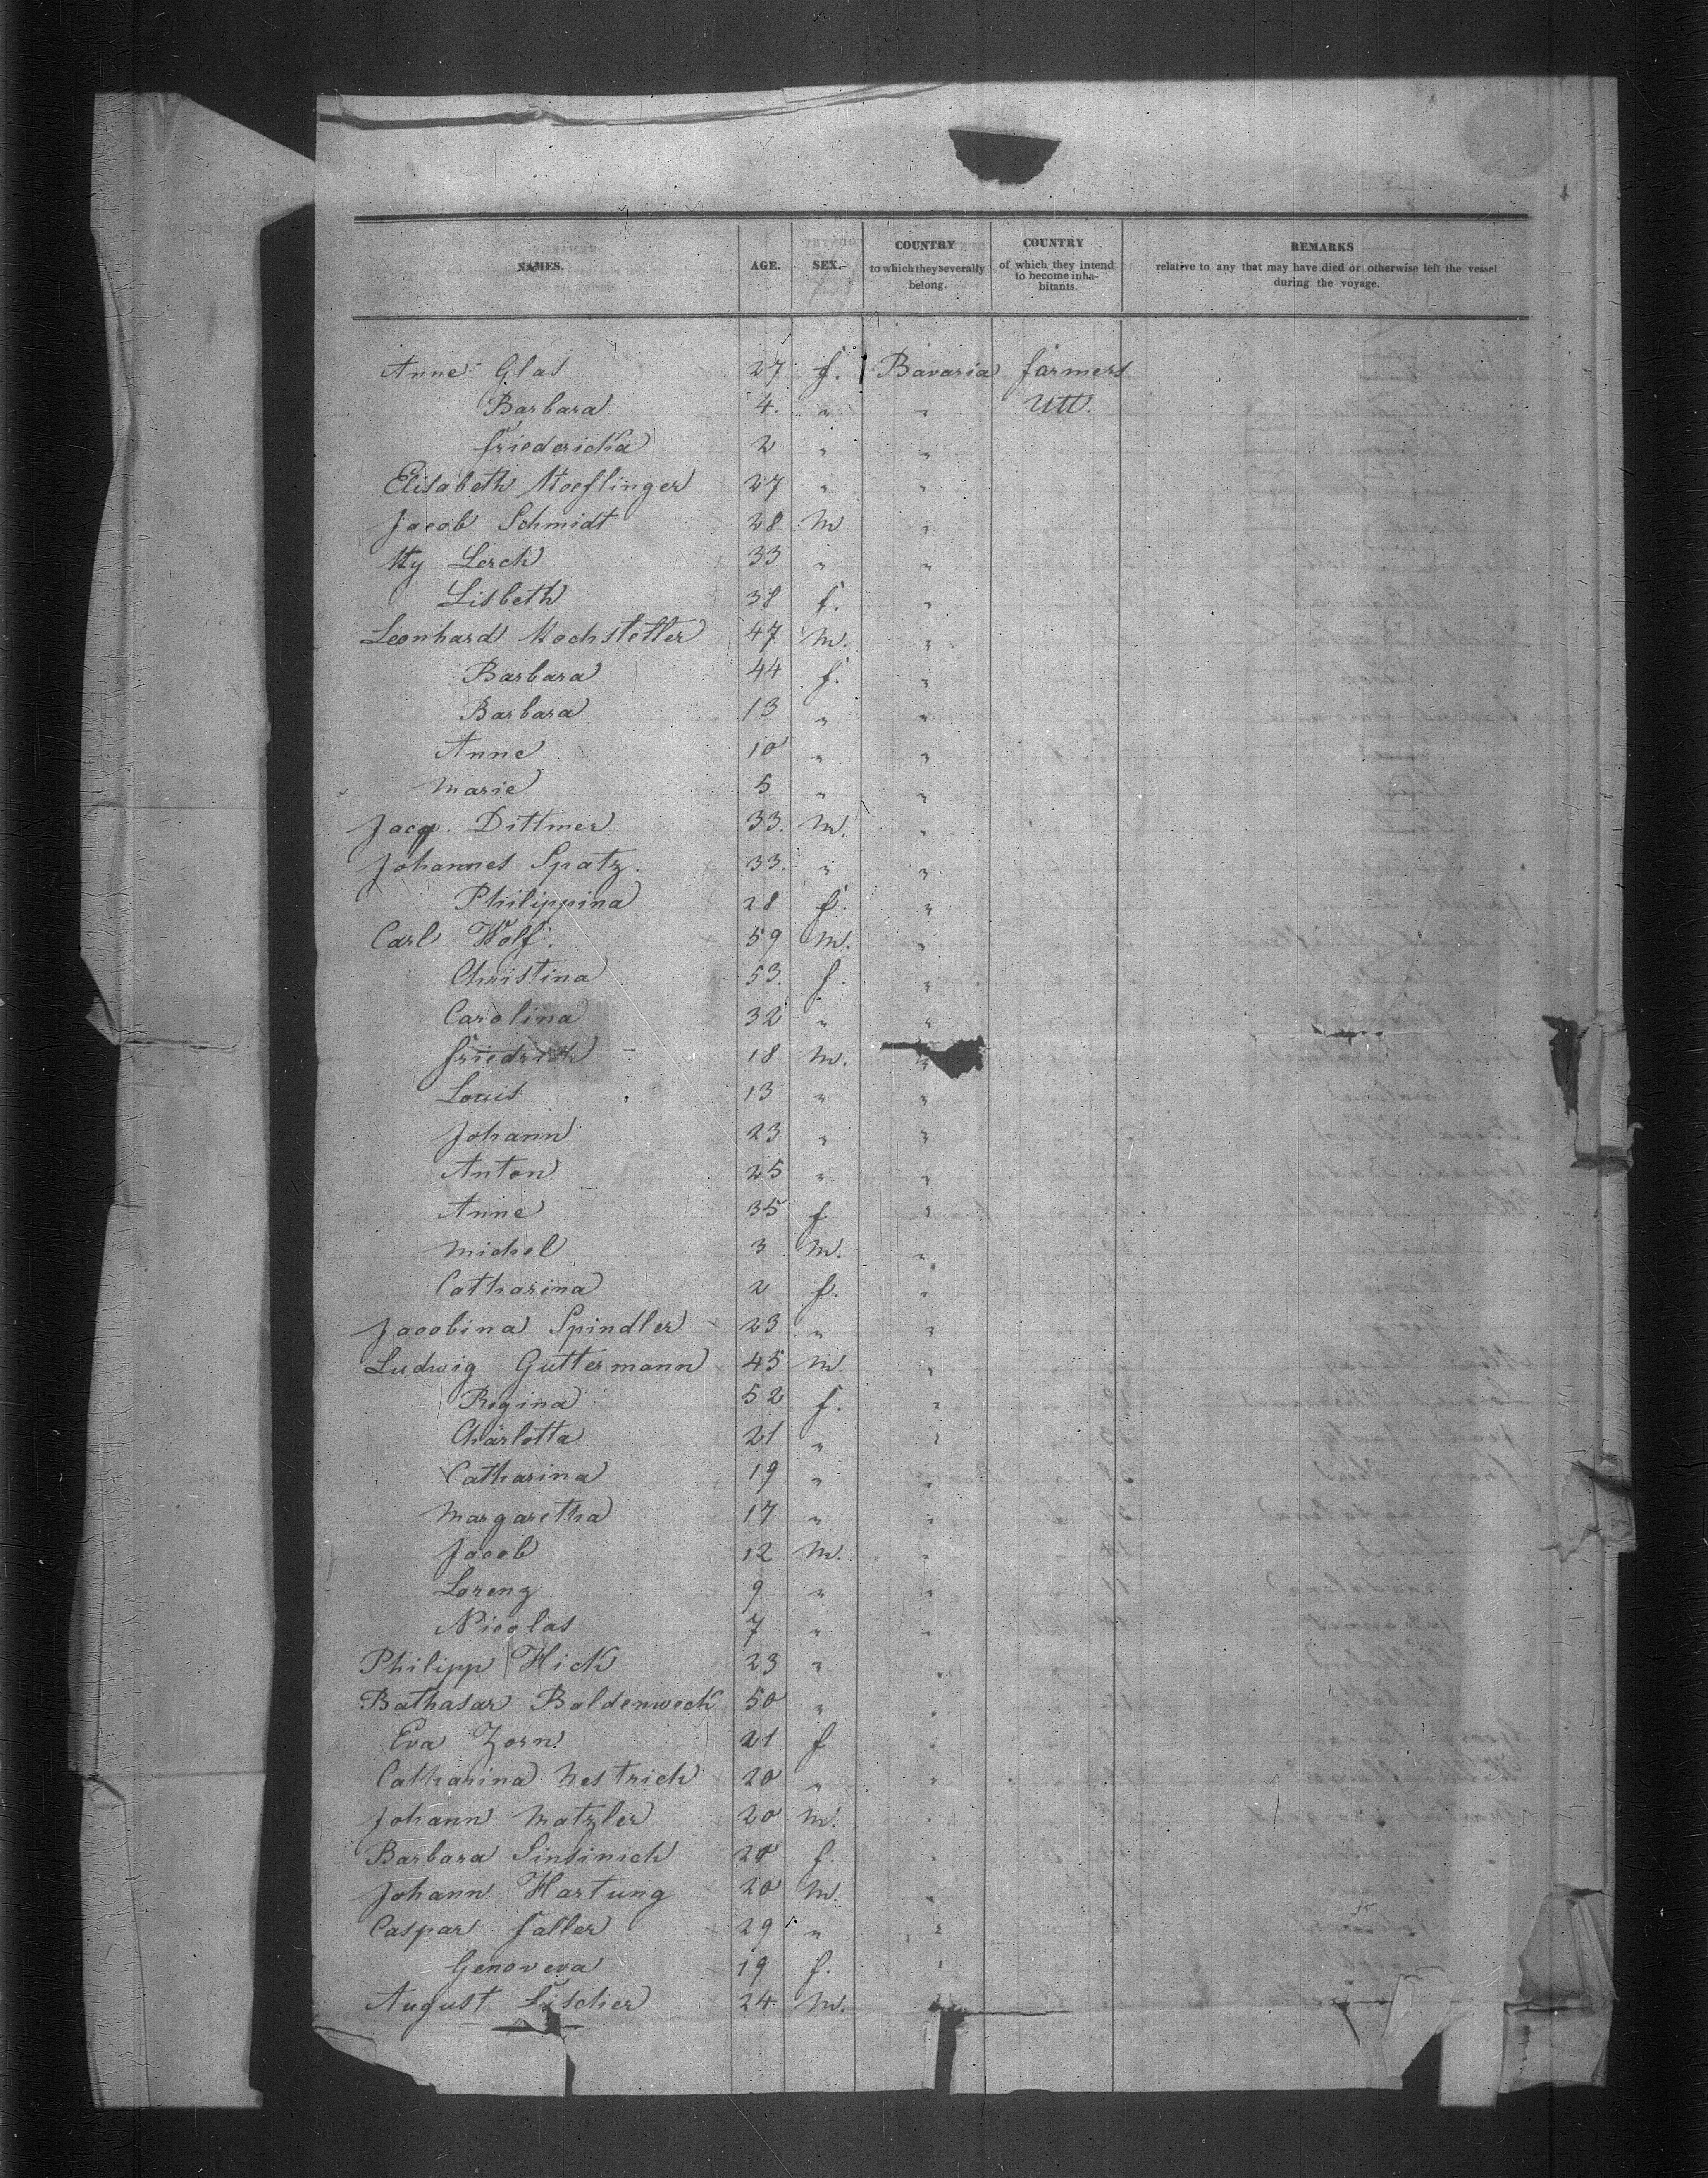 NAMES. AGE. SEX. COUNTRY to which they severally belong. COUNTRY of which they intend to become inhabitants. REMARKS relative to any that may have died or otherwise left the vessel during the voyage.
Anne Glas 27 f. Bavaria farmers
Barbara 4. " "
Friedericka 2 " "
Elisabeth Hoeflinger 27 " "
Jacob Schmidt 28 M "
Hy Lerch 33 " "
Lisbeth 38 f. "
Leonhard Hochstetter 47 M. "
Barbara 44 f. "
Barbara 13 " "
Anne 10 " "
Marie 5 " "
Jacq. Dittmer 33. M. "
Johannes Spatz. 33. " "
Philippina 28 f. "
Carl Wolf. 59 M. "
Christina 53. f. "
Carolina 32 " "
Friedrich 18 M. "
Louis 13 " "
Johann 23 " "
Anton 25 " "
Anne 35 f "
Michel 3 M. "
Catharina 2 f. "
Jacobina Spindler 23 " "
Ludwig Guttermann 45 M. "
Regina 52 f. "
Charlotta 21 " "
Catharina 19 " "
Margaretha 17 " "
Jacob 12 M. "
Lorenz 9 " "
Nicolas 7 " "
Philipp Hick 23 " "
Bathasar Baldenweck 50 " "
Eva Zorn 21 f "
Catharina Nestrich 20 " "
Johann Matzler 20 M. "
Barbara Sinsinich 20 f. "
Johann Hartung 20 M. "
Caspar Faller 29 " "
Genoveva 19 f. "
August Fischer 24 M. "